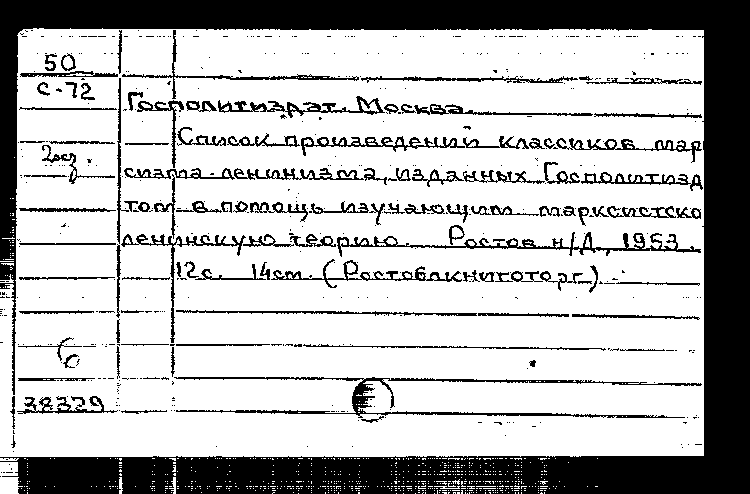 50
С-72
Госполитиздат. Москва.
Список произведений классиков мар
сизма-ленинизма, изданных Госполитизд
том в помощь изучающим марксистско
ленинскую теорию. Ростов н/Д., 1953.
12с. 14см. (Ростоблкниготорг)
2оэз.
6
38329